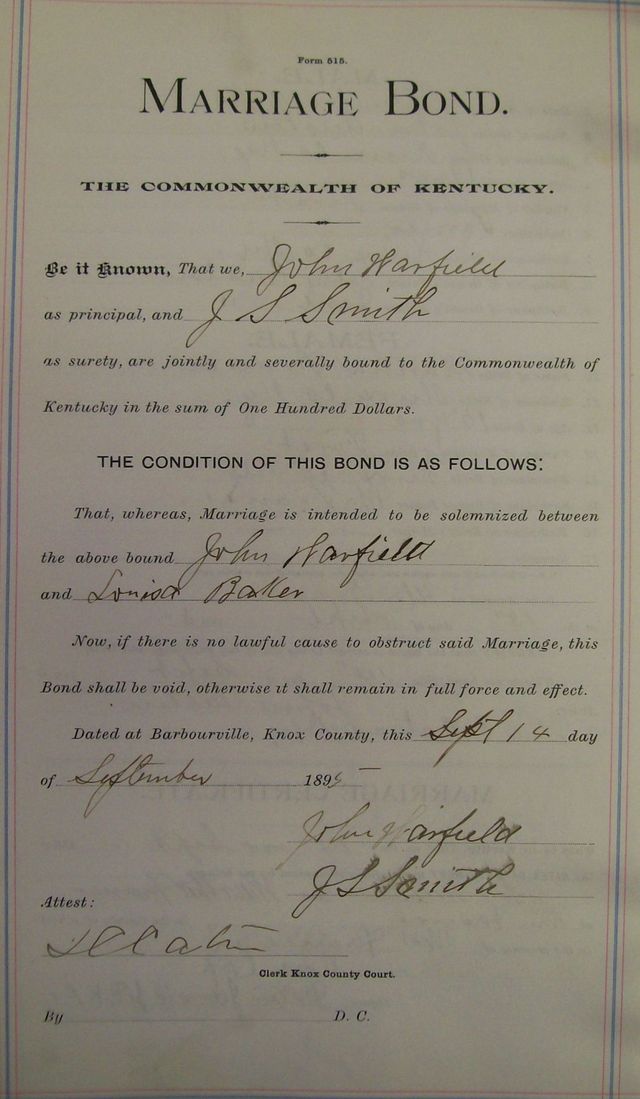 Form 515.
MARRIAGE BOND.
THE COMMONWEALTH OF KENTUCKY.
Be it Known, That we, John Warfield
as principal, and J S Smith
as surety, are jointly and severally bound to the Commonwealth of
Kentucky in the sum of One Hundred Dollars.
THE CONDITION OF THIS BOND IS AS FOLLOWS:
That, whereas, Marriage is intended to be solemnized between
the above bound John Warfield
and Louisa Baker
Now, if there is no lawful cause to obstruct said Marriage, this
Bond shall be void, otherwise it shall remain in full force and effect.
Dated at Barbourville, Knox County, this Sept 14 day
of September 189
John Warfield
J S Smith
Attest:
Clerk Knox County Court.
By D. C.